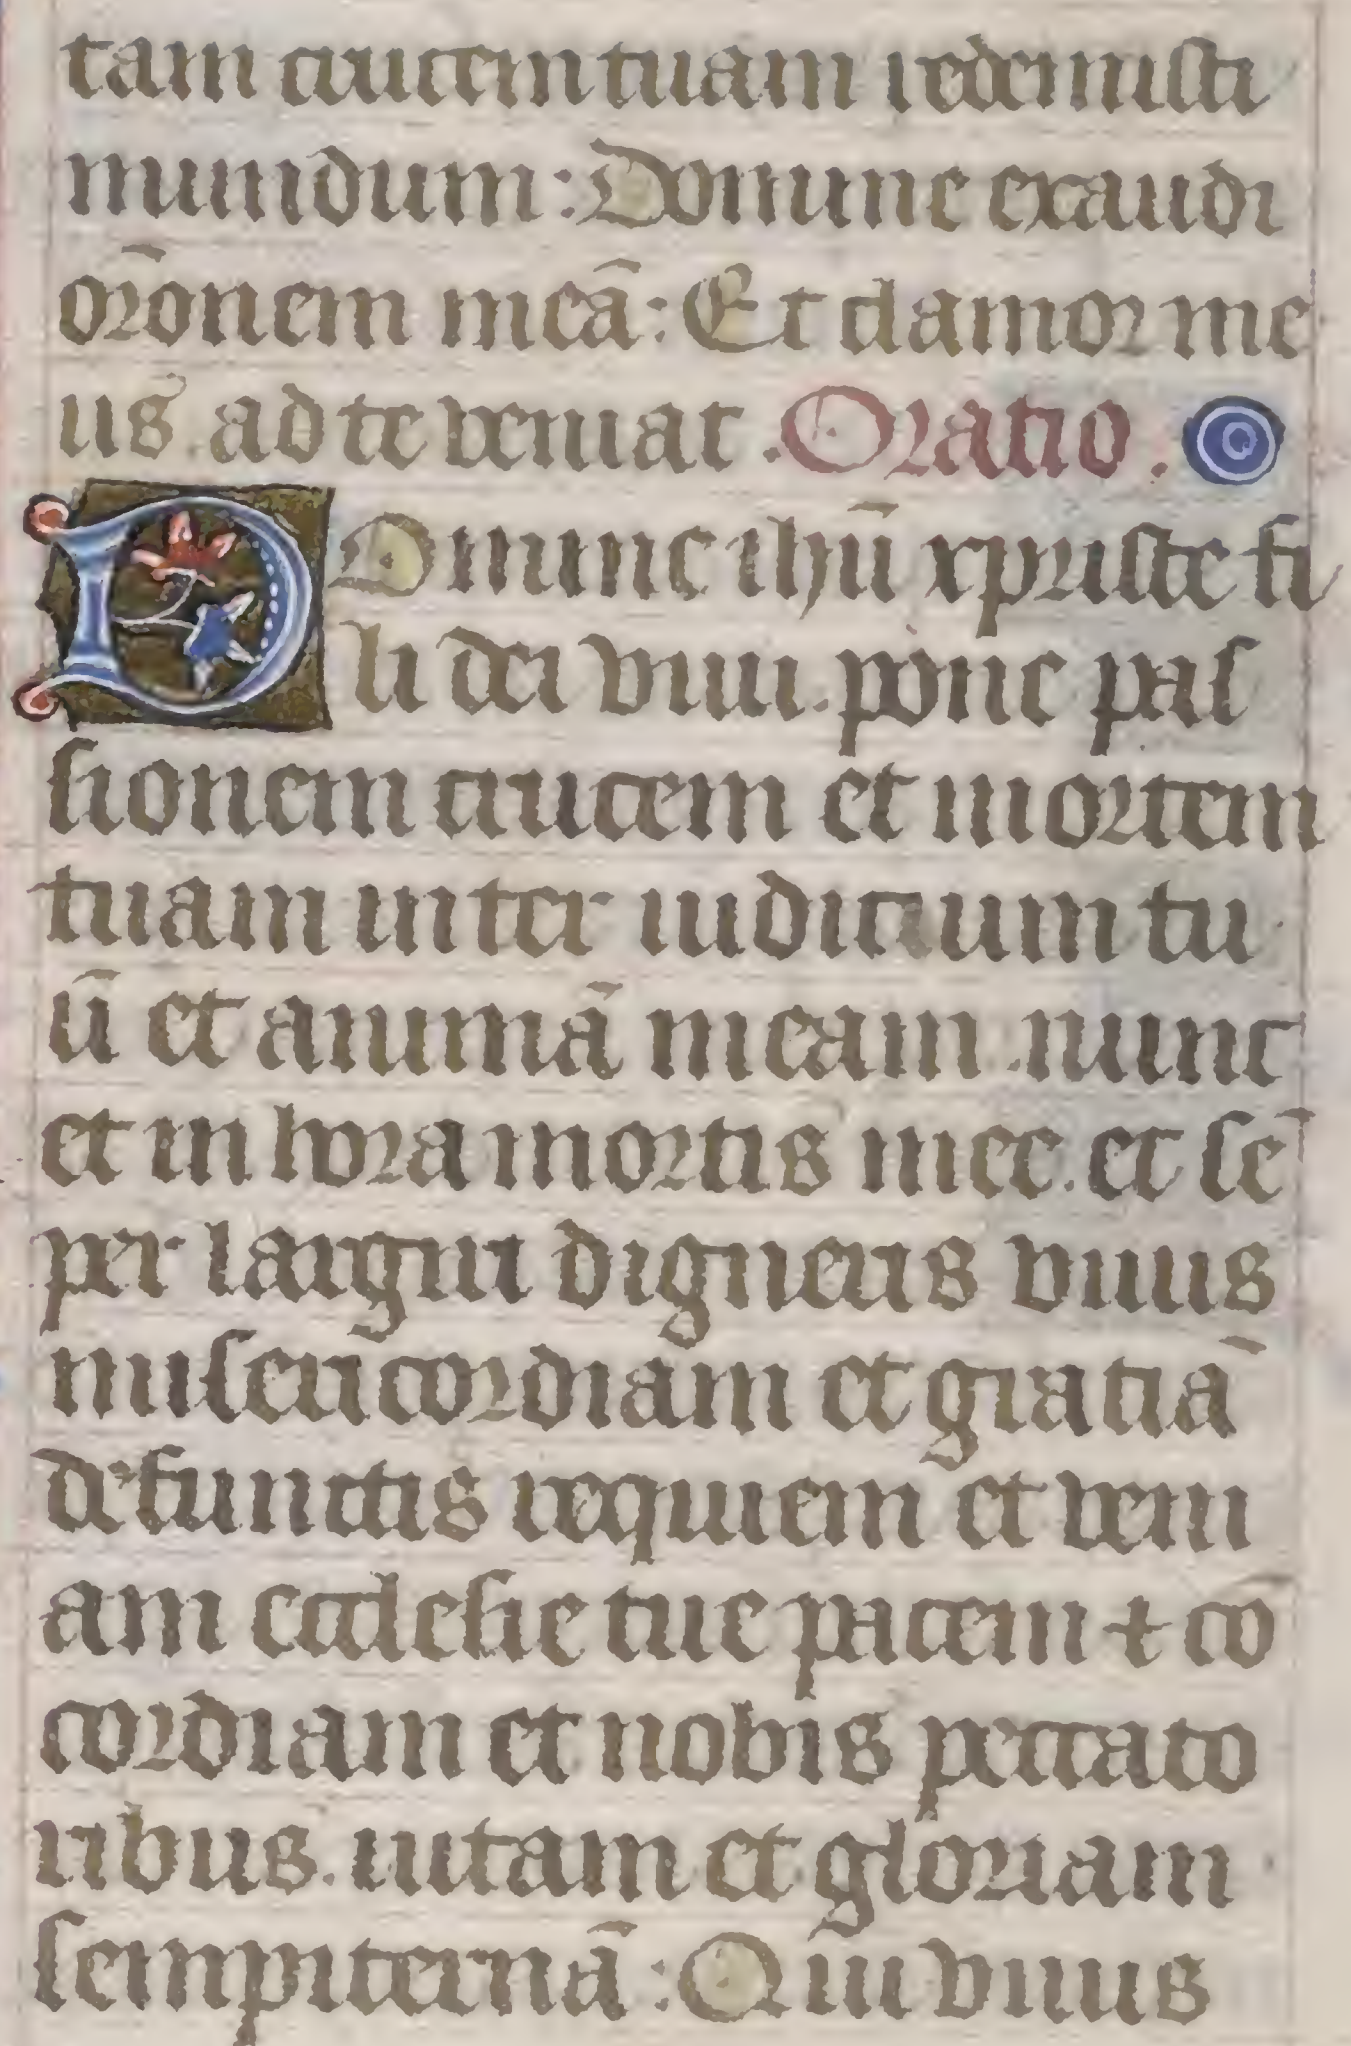 tam crucem tuam redemisti
mundum: Domine exaudi
orōnem meā: Et clamor me
us ad te veniat. Oratio.
DOmine ihū xpriste fi
li dei viui. pone pas
sionem crucem et mortem
tuam inter iudicium tu
ū et animā meam. nunc
et in hora mortis mee. et sē
per largiri digneris viuis
misericordiam et gratiā
defunctis requiem et veni
am ecclesie tue pacem et cō
cordiam et nobis peccato
ribus. uitam et gloriam
sempiternā: Qui viuis